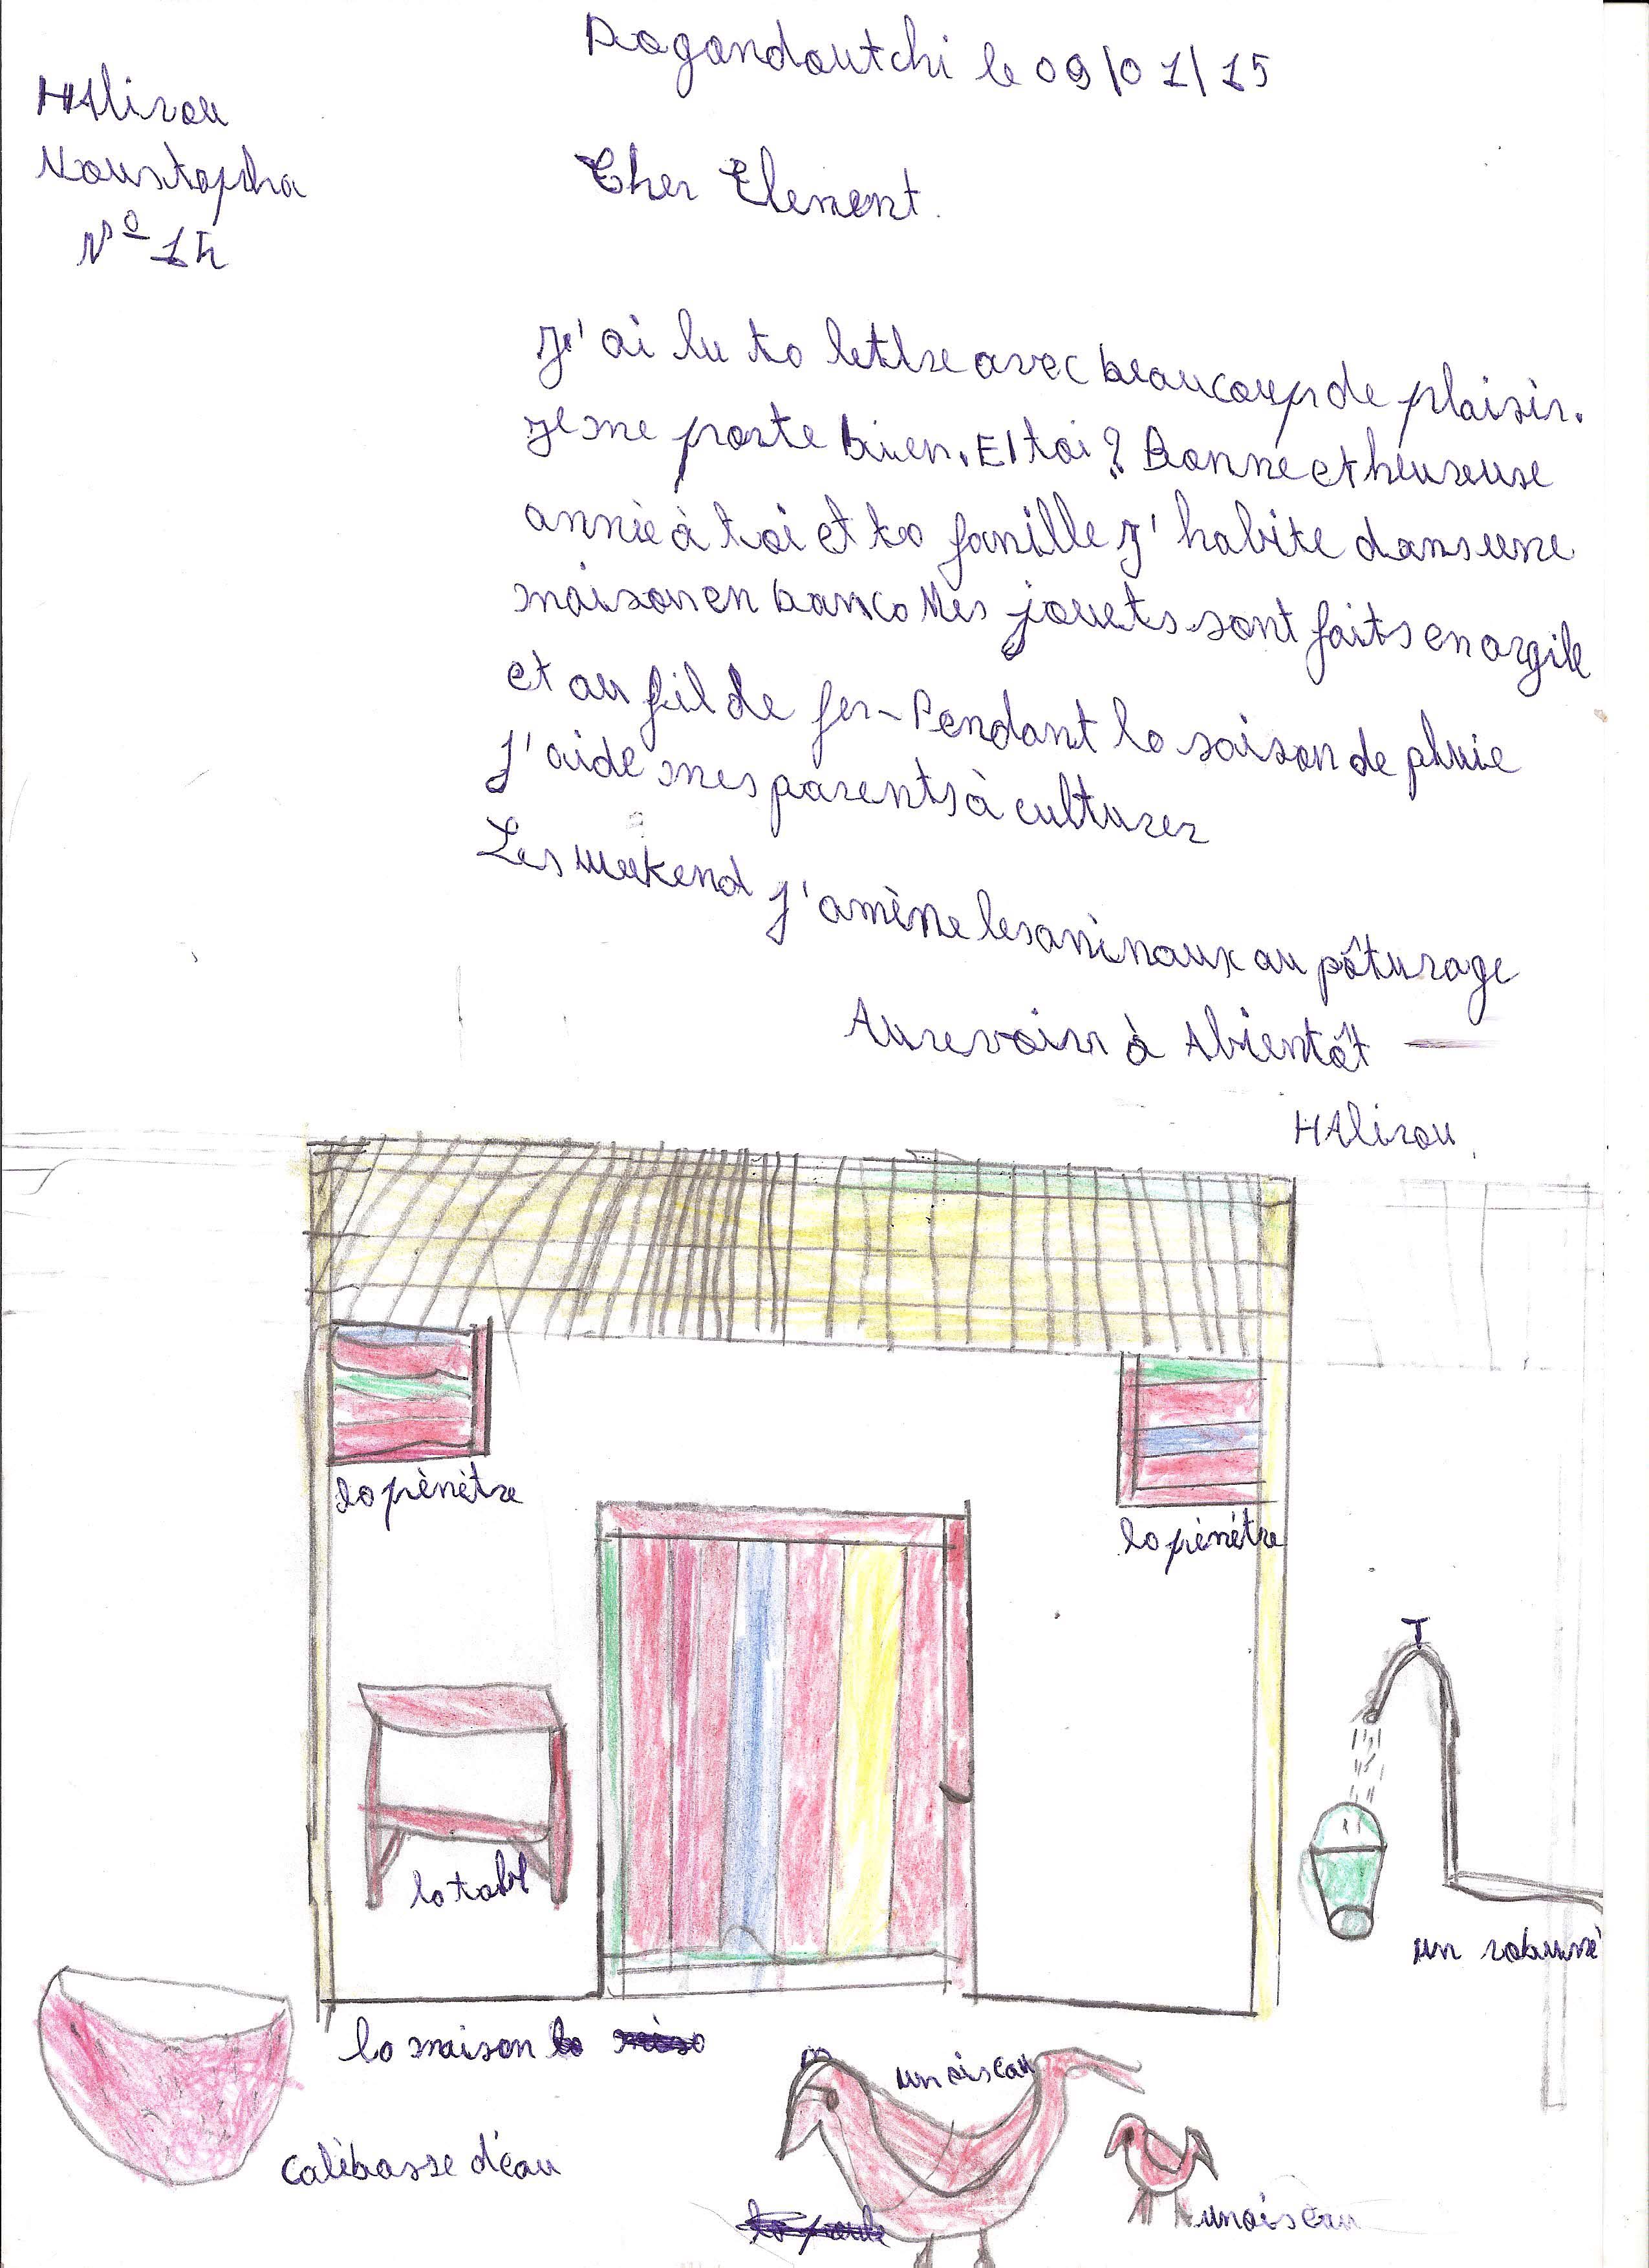 Dogondoutchi le 09/01/15
HAlirou
Moustapha
N° 14
Cher Element.
J'ai lu ta lettre avec beaucoup de plaisir.
Je me porte bien. Et toi ? Bonne et heureuse
année à toi et ta famille J'habite dans une
maison en banco Mes jouets sont faits en argile
et au fil de fer - Pendant la saison de pluie
J'aide mes parents à culturer
Les weekend J'amène les animaux au pâturage
Au revoirr à Abientôt
HAlirou
la pènètre
la pènétre
la tabl
un robuné
la maison la
un oiseau
calèbasse d'éau
la poule
un oiseau